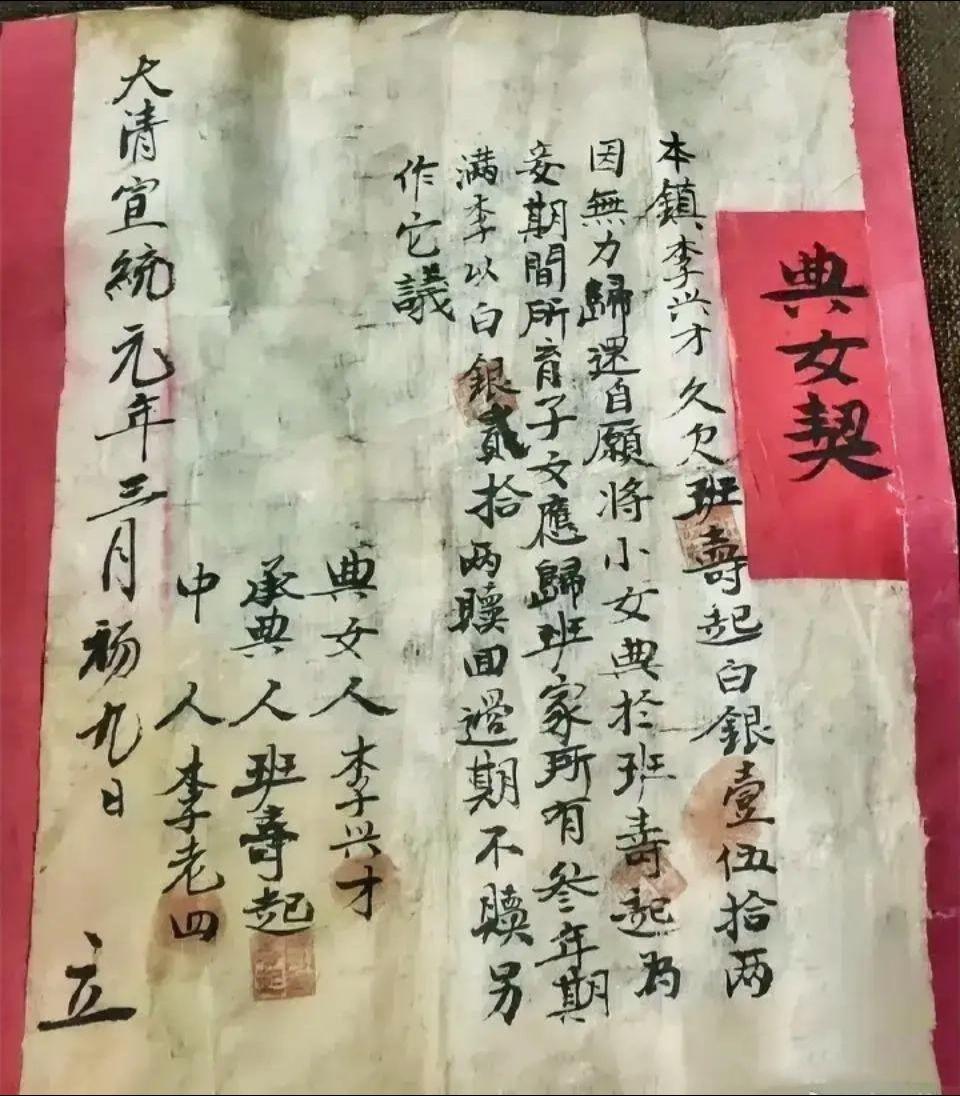 典女契
本鎮李兴才久欠班壽起白銀壹伍拾两
因無力歸还自愿将小女典於班壽起为
妾期間所育子女應歸班家所有叁年期
满李以白銀贰拾两贖回過期不贖另
作它議
典女人李兴才
承典人班壽起
中人李老四
大清宣統元年三月初九日 立